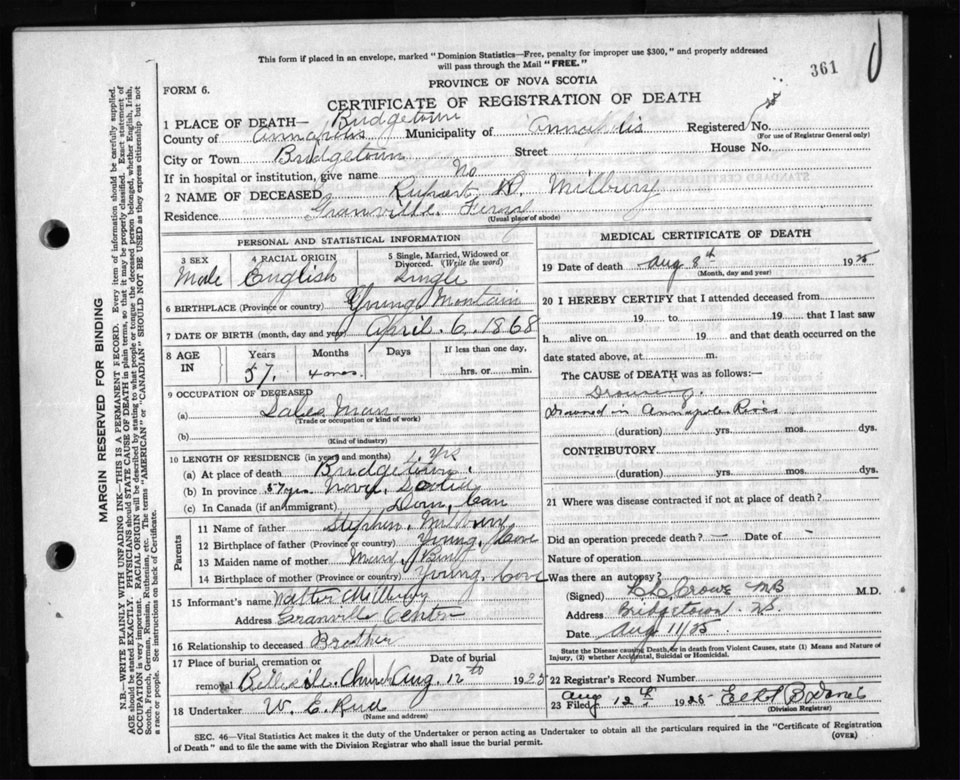 This form if placed in an envelope, marked "Dominion Statistics—Free, penalty for improper use $300," and properly addressed
will pass through the Mail "FREE."
361
PROVINCE OF NOVA SCOTIA
FORM 6.
CERTIFICATE OF REGISTRATION OF DEATH
1 PLACE OF DEATH— Bridgetown
County of Annapolis Municipality of Annapolis Registered No.
(For use of Registrar General only)
City or Town Bridgetown Street House No.
If in hospital or institution, give name No
2 NAME OF DECEASED Rupart D. Milbury
Residence Granville Ferry
(Usual place of abode)
PERSONAL AND STATISTICAL INFORMATION
3 SEX Male
4 RACIAL ORIGIN English
5 Single, Married, Widowed or Divorced. (Write the word) Single
6 BIRTHPLACE (Province or country) Young Montain
7 DATE OF BIRTH (month, day and year) April. 6. 1868
8 AGE IN Years Months Days If less than one day,
57. 4 mos. hrs. or min.
9 OCCUPATION OF DECEASED
(a) Sales Man
(Trade or occupation or kind of work)
(b)
(Kind of industry)
10 LENGTH OF RESIDENCE (in years and months) yrs
(a) At place of death Bridgetown.
(b) In province 57 yrs. Nova Scotia
(c) In Canada (if an immigrant) Dom, Can
Parents
11 Name of father Stephen. Milbury
12 Birthplace of father (Province or country) Young, Cove
13 Maiden name of mother
14 Birthplace of mother (Province or country) Young, Cove
15 Informant's name Walter Milbury
Address Granville Center
16 Relationship to deceased Brother
17 Place of burial, cremation or removal Belleisle. Church Date of burial Aug. 12th 1925
18 Undertaker W. E. Reid
(Name and address)
MEDICAL CERTIFICATE OF DEATH
19 Date of death Aug 8th 1925
(Month, day and year)
20 I HEREBY CERTIFY that I attended deceased from
19 to 19 that I last saw
h alive on 19 and that death occurred on the
date stated above, at m.
The CAUSE of DEATH was as follows:—
Drowning.
Drowned in Annapolis River
(duration) yrs. mos. dys.
CONTRIBUTORY
(duration) yrs. mos. dys.
21 Where was disease contracted if not at place of death?
Did an operation precede death? — Date of —
Nature of operation
Was there an autopsy?
(Signed) L L Crowe MB M.D.
Address Bridgetown N.S.
Date Aug 11/25.
State the Disease causing Death, or in death from Violent Causes, state (1) Means and Nature of
Injury, (2) whether Accidental, Suicidal or Homicidal.
22 Registrar's Record Number
23 Filed Aug 12th 1925
(Division Registrar)
SEC. 46—Vital Statistics Act makes it the duty of the Undertaker or person acting as Undertaker to obtain all the particulars required in the "Certificate of Registration
of Death" and to file the same with the Division Registrar who shall issue the burial permit. (OVER)
MARGIN RESERVED FOR BINDING
N.B.—WRITE PLAINLY WITH UNFADING INK—THIS IS A PERMANENT RECORD. Every item of information should be carefully supplied.
AGE should be stated EXACTLY. PHYSICIANS should STATE CAUSE OF DEATH in plain terms, so that it may be properly classified. Exact statement of
OCCUPATION is very important. RACIAL ORIGIN will be described by stating to what people or tongue the deceased person belonged, whether English, Irish,
Scotch, French, German, Russian, Ruthenian, etc. The terms "AMERICAN" or "CANADIAN" SHOULD NOT BE USED as they express citizenship but not
a race or people. See instructions on back of Certificate.